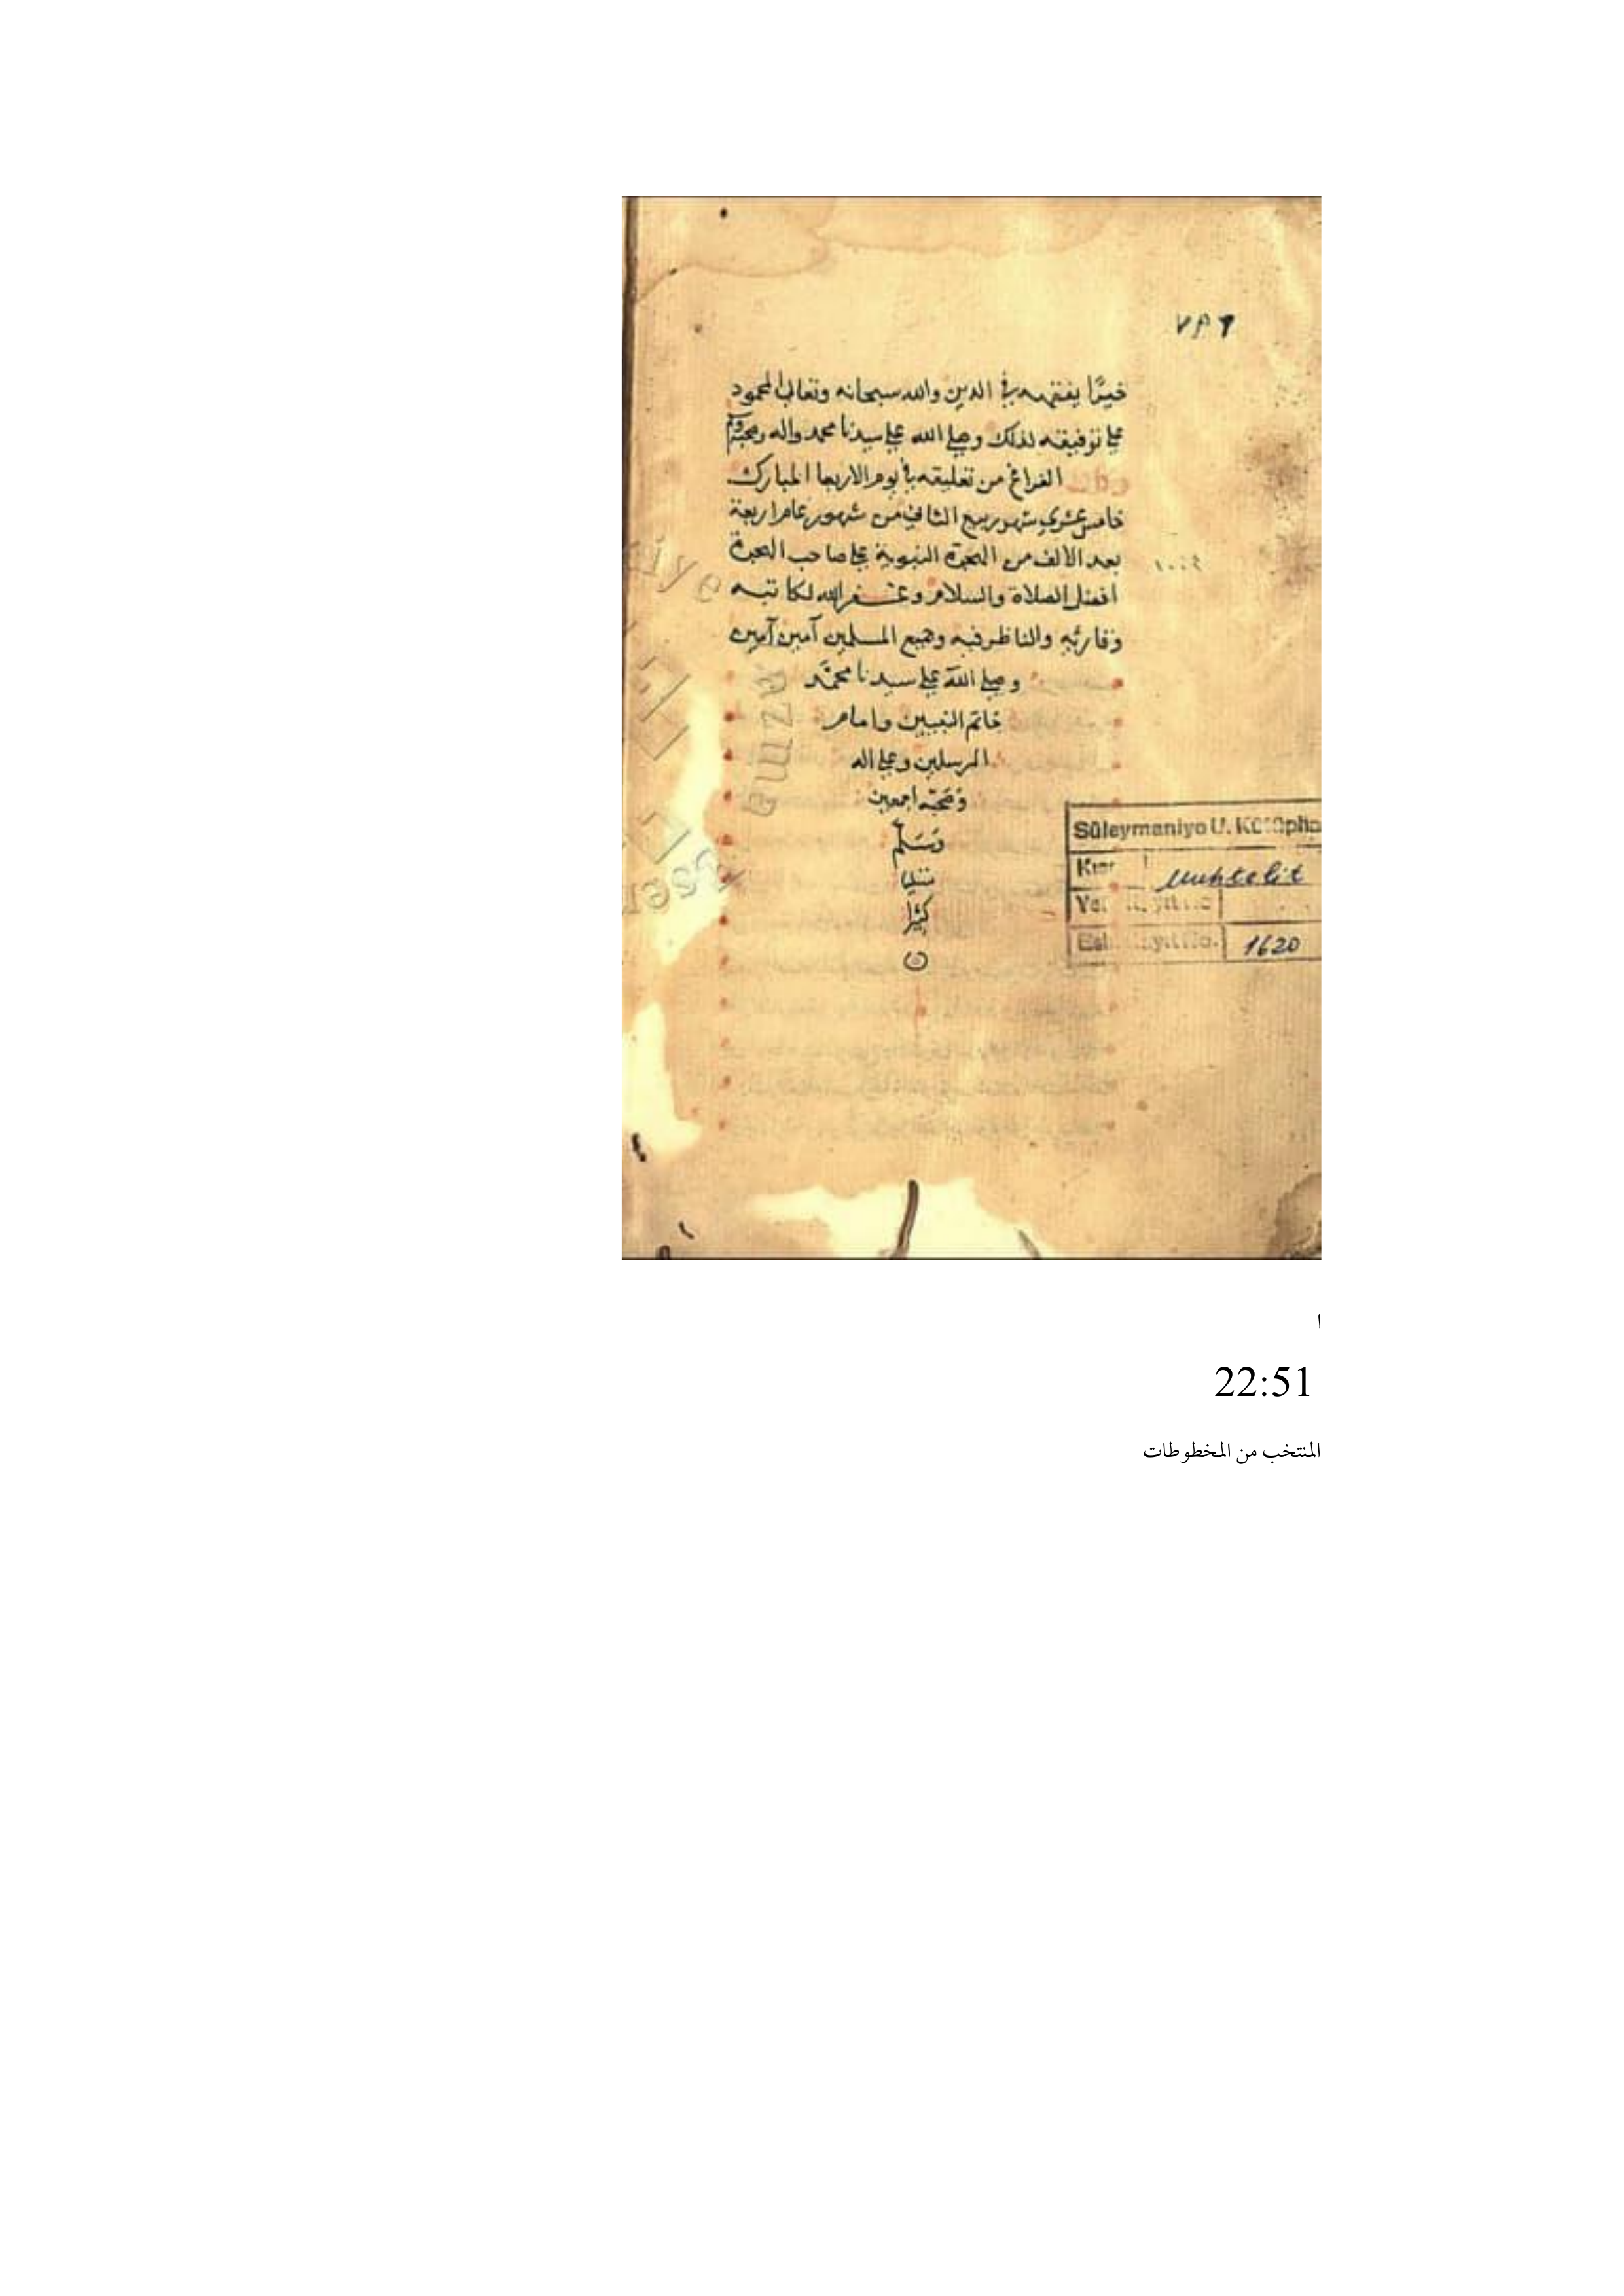 ٧٨٩
خيرًا يفقهه في الدين والله سبحانه وتعالى المحمود
على توفيقه لذلك وصلى الله على سيدنا محمد واله وصحبه وسلم
الفراغ من تعليقه في يوم الاربعا المبارك
خامس عشري شهور ربيع الثاني من شهور عام اربعة
بعد الالف من الهجرة النبوية على صاحب الهجرة
١٠٠٤
افضل الصلاة والسلام وغفر الله لكاتبه
وقارئه والناظر فيه وجميع المسلمين آمين آمين
وصلى الله على سيدنا محمد
خاتم النبيين وامام
المرسلين وعلى اله
وصحبه اجمعين
وسلم
تسليما
كثيرا
Süleymaniye U. Kütüpha
Muhtelit
1620
ا
22:51
المنتخب من المخطوطات